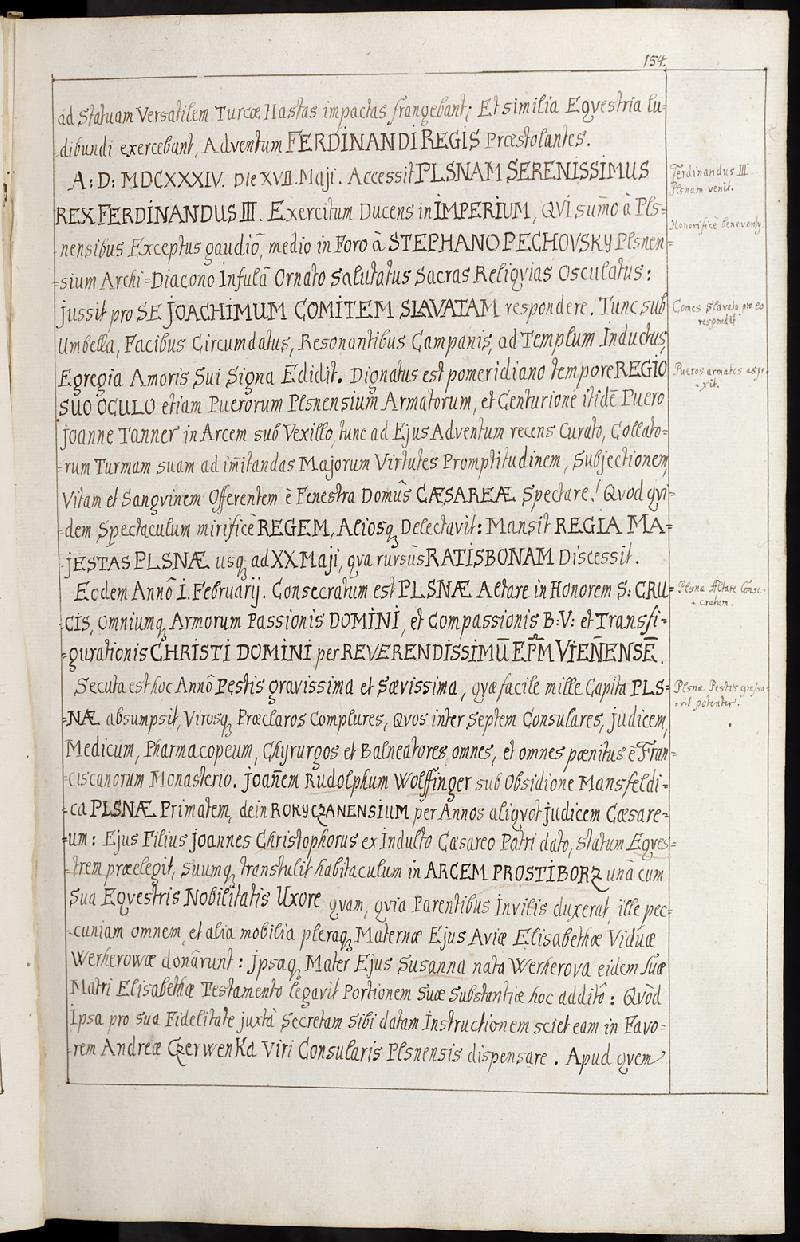 154.
ad Statuam Versatilem Turcæ Hastas impactas frangebant; Et similia Eqvestria lu-
dibundi exercebant, Adventum FERDINANDI REGIS Præstolantes.
A: D: MDCXXXIV. Die XVII. Maji. Accessit PLSNAM SERENISSIMUS
REX FERDINANDUS III. Exercitum Ducens in IMPERIUM, QVI sum̄o à Pls-
nensibus Exceptus gaudiō, medio in Foro à STEPHANO PECHOVSKY Plsnen-
sium Archi-Diacono Infulâ Ornato Salutatus Sacras Reliqvias Osculatus:
jussit pro SE JOACHIMUM COMITEM SLAVATAM respondere. Tunc sub
Umbella, Facibus Circumdatus, Resonantibus Campanis, ad Templum Inductus,
Egregia Amoris Sui Signa Edidit. Dignatus est pomeridiano tempore REGIO
SUO OCULO etiam Puerorum Plsnensium Armatorum, et Centurione itidē Puero
Joanne Tanner in Arcem sub Vexillo, tunc ad Ejus Adventum recens Curato, Collato-
rum Turmam suam ad imitandas Majorum Virtutes Promptitudinem, Subjectionem
Vitam et Sangvinem Offerentem è Fenestra Domûs CÆSAREÆ Spectare! Qvod qvi-
dem Spectaculum mirificè REGEM, Aliosq̨ Delectavit: Mansit REGIA MA-
JESTAS PLSNÆ usq̨ ad XX Maji, qva rursùs RATISBONAM Discessit.
Eodem Annō I. Februarij. Consecratum est PLSNÆ Altare in Honorem S: CRU-
CIS, Omniumq̨ Armorum Passionis DOMINI, et Compassionis B: V: et Transfi-
gurationis CHRISTI DOMINI per REVERENDISSIMŪ EP̄M VIEN̄ENSĒ.
Secuta est hoc Annō Pestis gravissima et Sævissima, qvæ facile mille Capita PLS-
NÆ absumpsit, Virosq̨ Præclaros Complures, Qvos inter Septem Consulares, judicem,
Medicum, Pharmacopeum, Chyrurgos et Balneatores omnes, et omnes pœnitus è Fran-
ciscanorum Monasterio. Joan̄em Rudolphum Wolffinger sub Obsidione Mansfeldi-
ca PLSNÆ Primatem, dein ROKYCZANENSIUM per Annos aliqvot judicem Cæsare-
um: Ejus Filius Joannes Christophorus ex Indulto Cæsareo Patri dato, statum Eqves-
trem præelegit, suumq̨ transtulit habitaculum in ARCEM PROSTIBORZ unà cum
Sua Eqvestris Nobilitatis Uxore qvam, qvia Parentibus Invitis duxerat, ille pec-
cuniam omnem, et alia mobilia pleraq̨ Maternæ Ejus Aviæ Elisabethæ Viduæ
Werherowæ donârunt: Jpsaq̨ Mater Ejus Susanna nata Werherova eidem suæ
Matri Elisabethæ Testamento legavit Portionem Suæ Substantiæ hoc additō: Qvòd
Ipsa pro sua Fidelitate juxtà Secretam Sibi datam Instructionem sciet eam in Favo-
rem Andreæ CzerwenKa Viri Consularis Plsnensis dispensare. Apud qvem
Ferdinandus III.
Plsnam venit.
Honorificè
Comes Slavata pro Eo
respondit
Pueros armatos
Plsnæ Altare Conse-
cratum.
Plsnæ Pestis